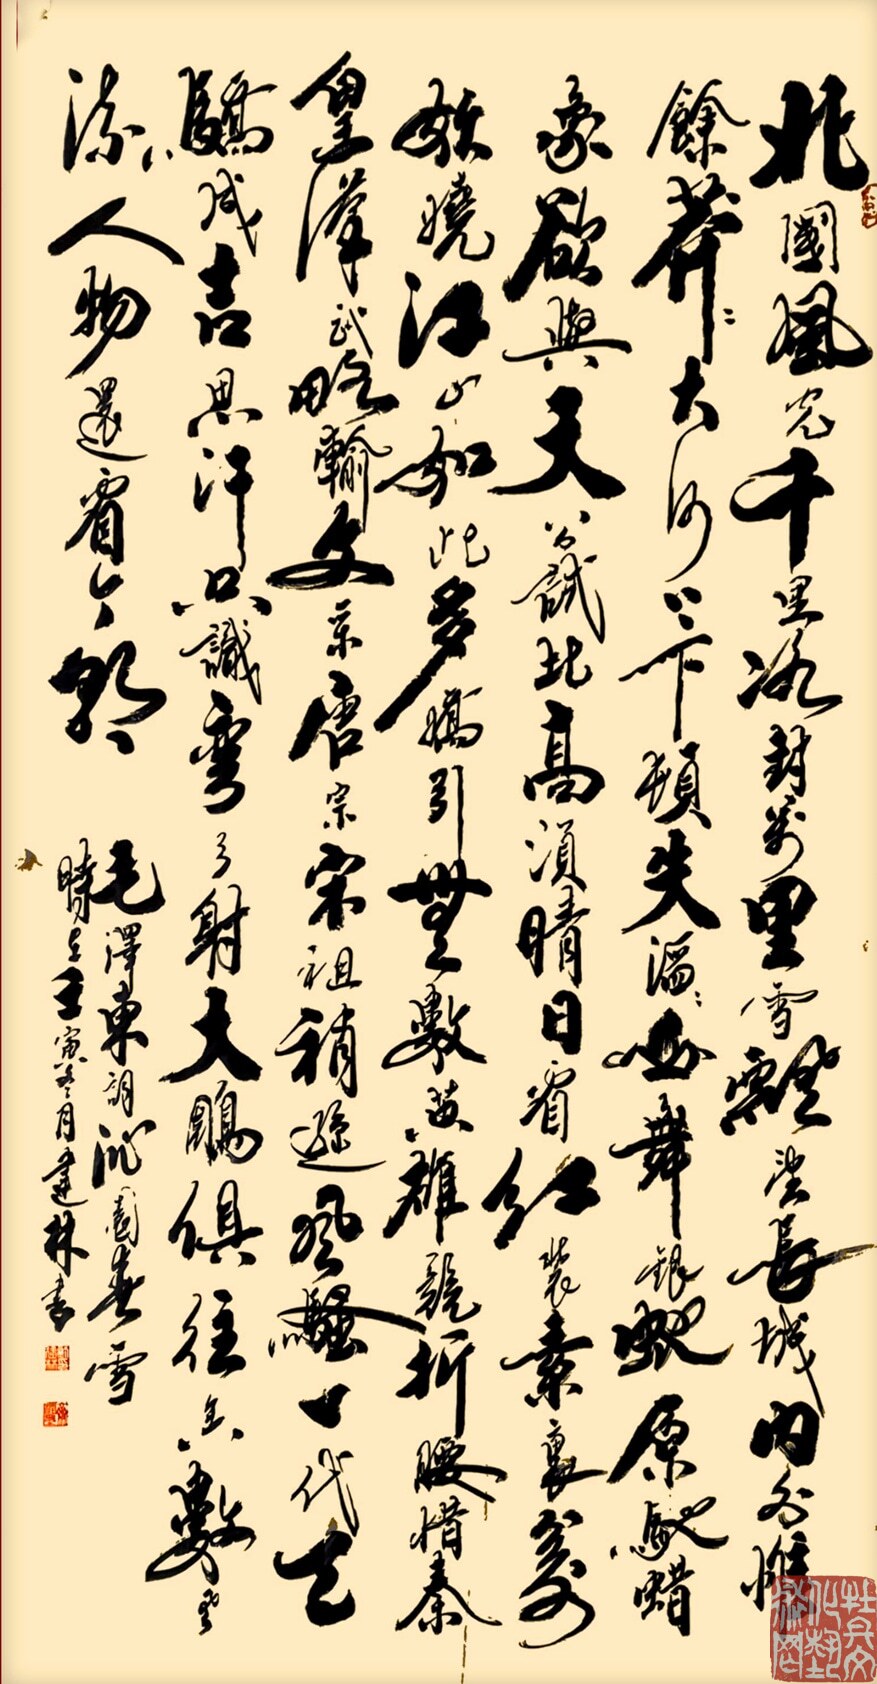 北國風光千里冰封萬里雪飄望長城內外惟
餘莽〻大河上下頓失滔〻山舞銀蛇原馳蜡
象欲與天公試比高須晴日看紅裝素裹分外
妖嬈江山如此多嬌引無數英雄競折腰惜秦
皇漢武略輸文采唐宗宋祖稍遜風騷一代天
驕成吉思汗只識彎弓射大鵰俱往矣數風
流人物還看今朝
毛澤東詞沁園春雪
時在壬寅冬月建林書